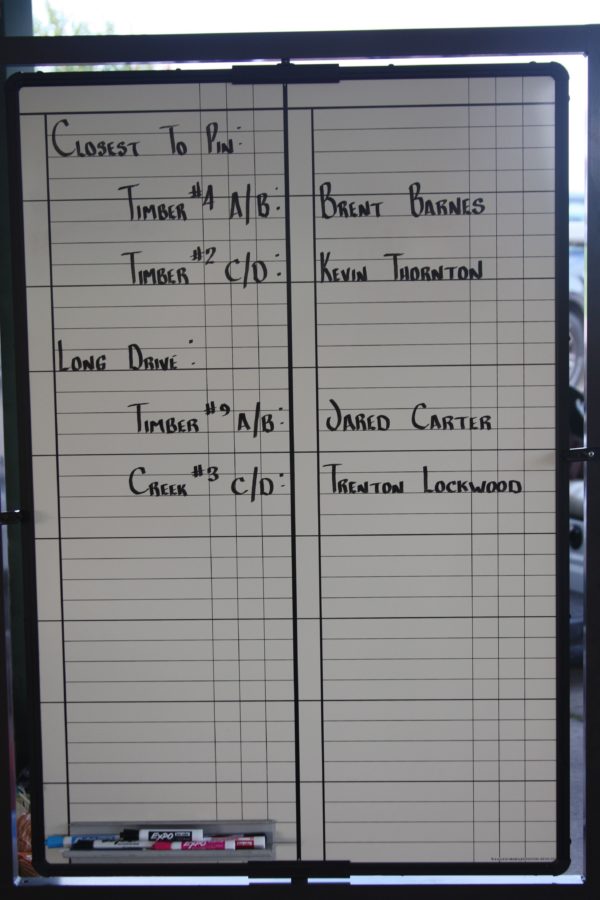 CLOSEST TO PIN:
TIMBER #4 A/B: BRENT BARNES
TIMBER #2 C/D: KEVIN THORNTON
LONG DRIVE:
TIMBER #9 A/B: JARED CARTER
CREEK #3 C/D: TRENTON LOCKWOOD
EXPO
EXPO